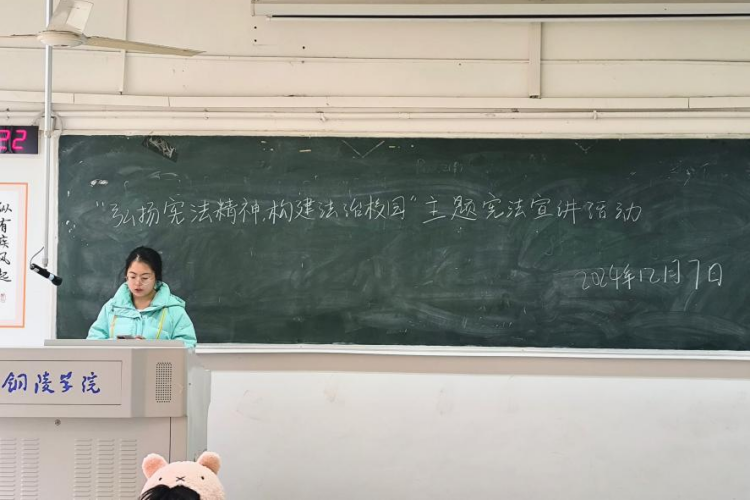 "弘扬宪法精神,构建法治校园"主题宪法宣讲活动
2024年12月7日
22
纵有疾风起
铜陵学院